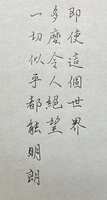 即使這個世界
多麼令人絕望
一切似乎都能明朗